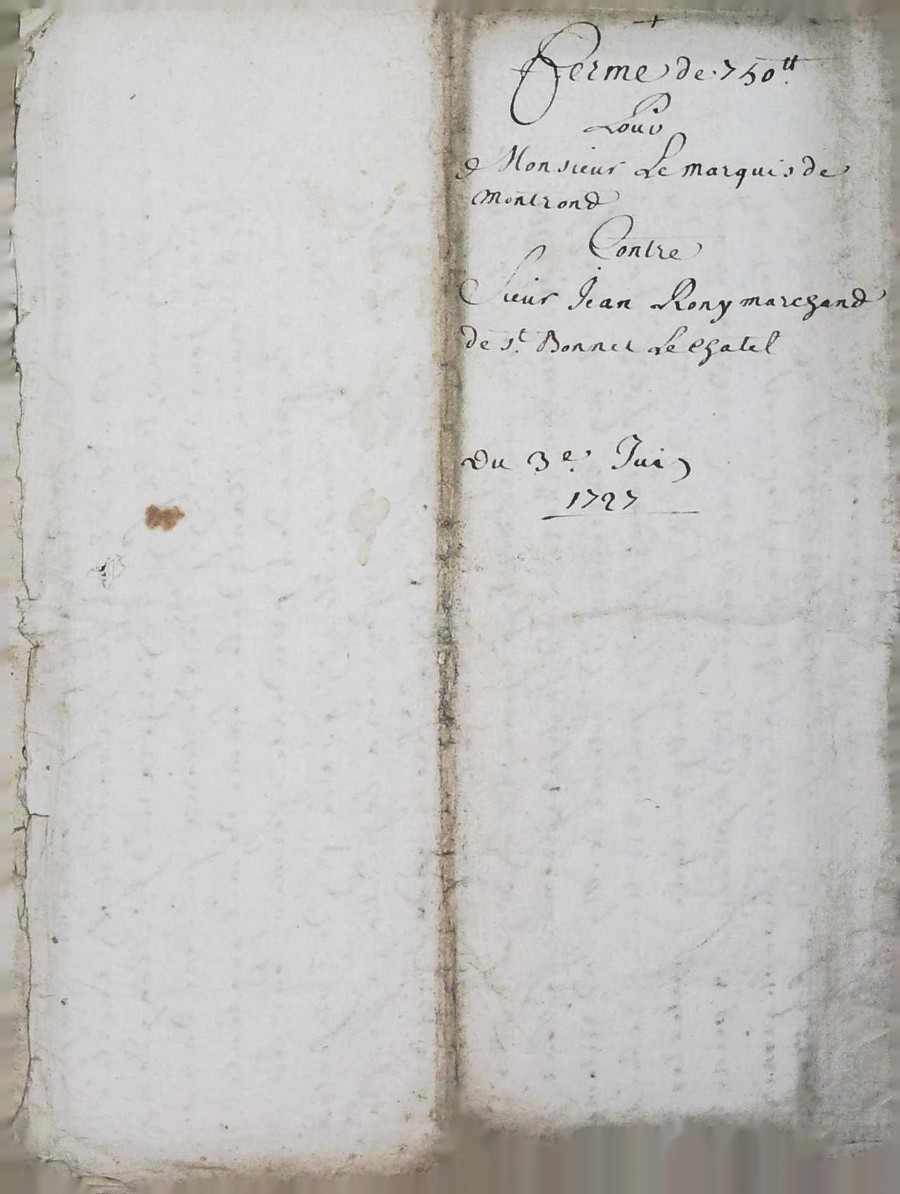 Ferme de 750 ₶
Pour
Monsieur Le marquis de
montrond
Contre
Sieur Jean Rony marchand
de St. Bonnet Le chatel
Du 3e. Juin
1727